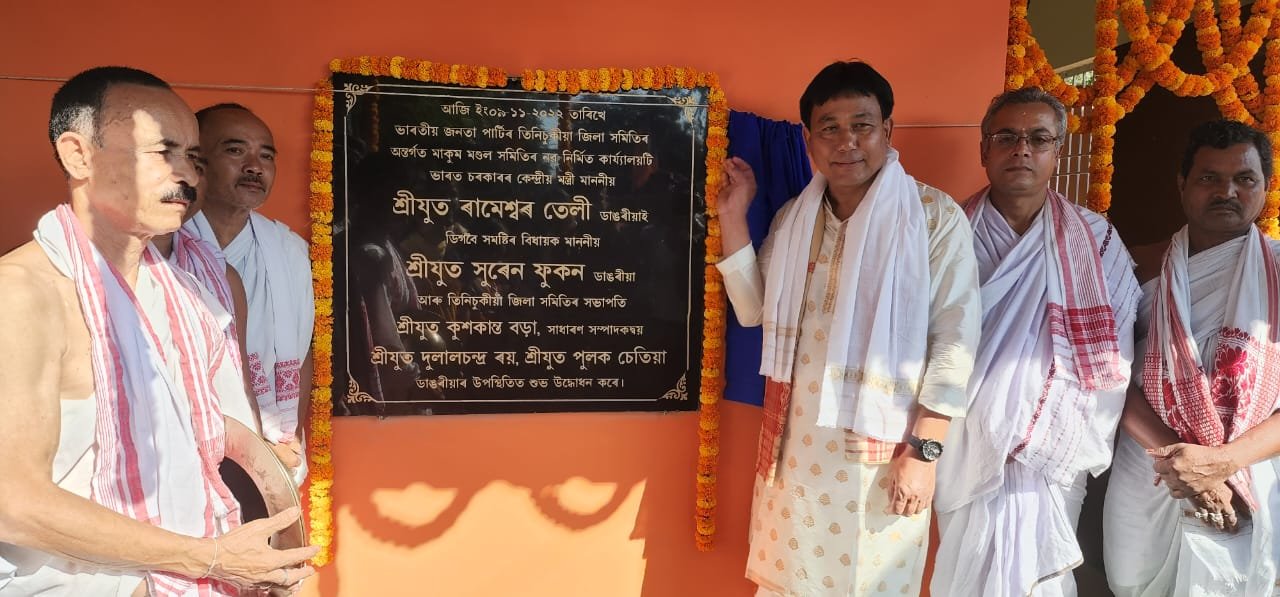 আজি ইং০৯-১১-২০২২ তাৰিখে
ভাৰতীয় জনতা পাৰ্টিৰ তিনিচুকীয়া জিলা সমিতিৰ
অন্তৰ্গত মাকুম মণ্ডল সমিতিৰ নৱ নিৰ্মিত কাৰ্য্যালয়টি
ভাৰত চৰকাৰৰ কেন্দ্ৰীয় মন্ত্ৰী মাননীয়
শ্ৰীযুত ৰামেশ্বৰ তেলী ডাঙৰীয়াই
ডিগবৈ সমষ্টিৰ বিধায়ক মাননীয়
শ্ৰীযুত সুৰেন ফুকন ডাঙৰীয়া
আৰু তিনিচুকীয়া জিলা সমিতিৰ সভাপতি
শ্ৰীযুত কুশকান্ত বড়া, সাধাৰণ সম্পাদকদ্বয়
শ্ৰীযুত দুলালচন্দ্ৰ ৰয়, শ্ৰীযুত পুলক চেতিয়া
ডাঙৰীয়াৰ উপস্থিতিত শুভ উদ্ধোধন কৰে।